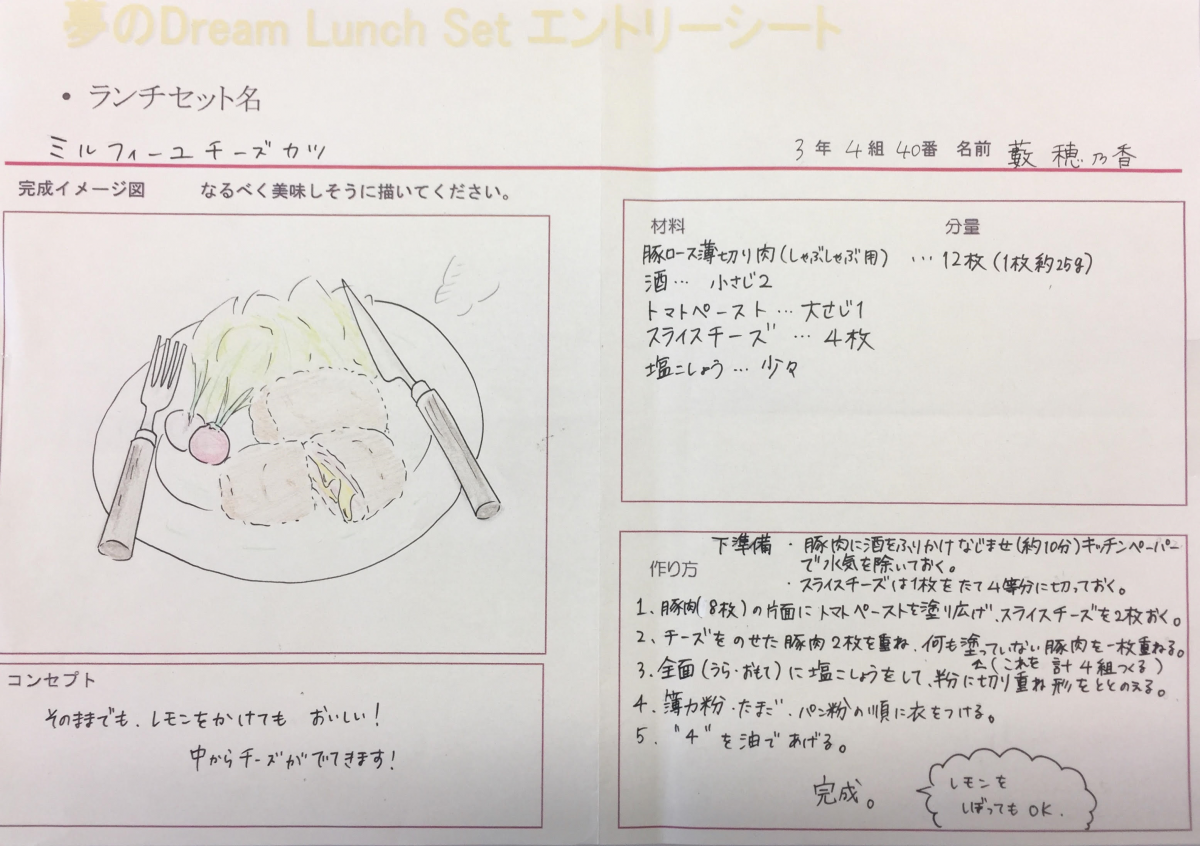 夢のDream Lunch Set エントリーシート
• ランチセット名
ミルフィーユチーズカツ
3年 4組 40番 名前 藪 穂乃香
完成イメージ図 なるべく美味しそうに描いてください。
材料 分量
豚ロース薄切り肉(しゃぶしゃぶ用) … 12枚(1枚約25g)
酒… 小さじ2
トマトペースト … 大さじ1
スライスチーズ … 4枚
塩こしょう … 少々
コンセプト
そのままでも、レモンをかけても おいしい!
中からチーズがでてきます!
作り方
下準備 ・豚肉に酒をふりかけなじませ(約10分)キッチンペーパー
で水気を除いておく。
・スライスチーズは1枚をたて4等分に切っておく。
1、豚肉(8枚)の片面にトマトペーストを塗り広げ、スライスチーズを2枚おく。
2、チーズをのせた豚肉2枚を重ね、何も塗っていない豚肉を一枚重ねる。
↑(これを 計4組つくる)
3、全面(うら・おもて)に塩こしょうをして、半分に切り重ね形をととのえる。
4、薄力粉・たまご、パン粉の順に衣をつける。
5、"4"を油であげる。
完成。
レモンを
しぼってもOK.